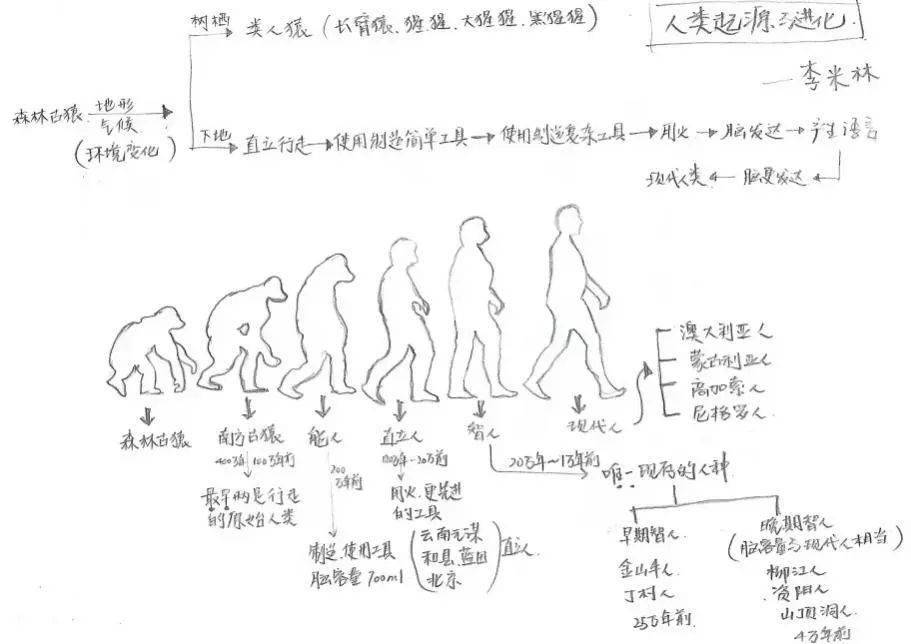 人类起源与进化
—李米林
树栖 类人猿（长臂猿、猩猩、大猩猩、黑猩猩）
森林古猿 地形
气候
（环境变化）
下地 直立行走→使用制造简单工具→使用制造复杂工具→用火→脑发达→产生语言
现代人类←脑更发达←
澳大利亚人
蒙古利亚人
高加索人
尼格罗人
森林古猿 南方古猿 能人 直立人 智人 现代人
400万年 100万年前
200
万年前
20万前
20万年~1万年前
唯一现存的人种
最早两足行走
的原始人类
用火.更先进
的工具
制造.使用工具
脑容量700ml
（云南元谋
和县.蓝田
北京）直立人
早期智人
金山牛人
丁村人
25万年前
晚期智人
（脑容量与现代人相当）
柳江人
资阳人
山顶洞人
4万年前